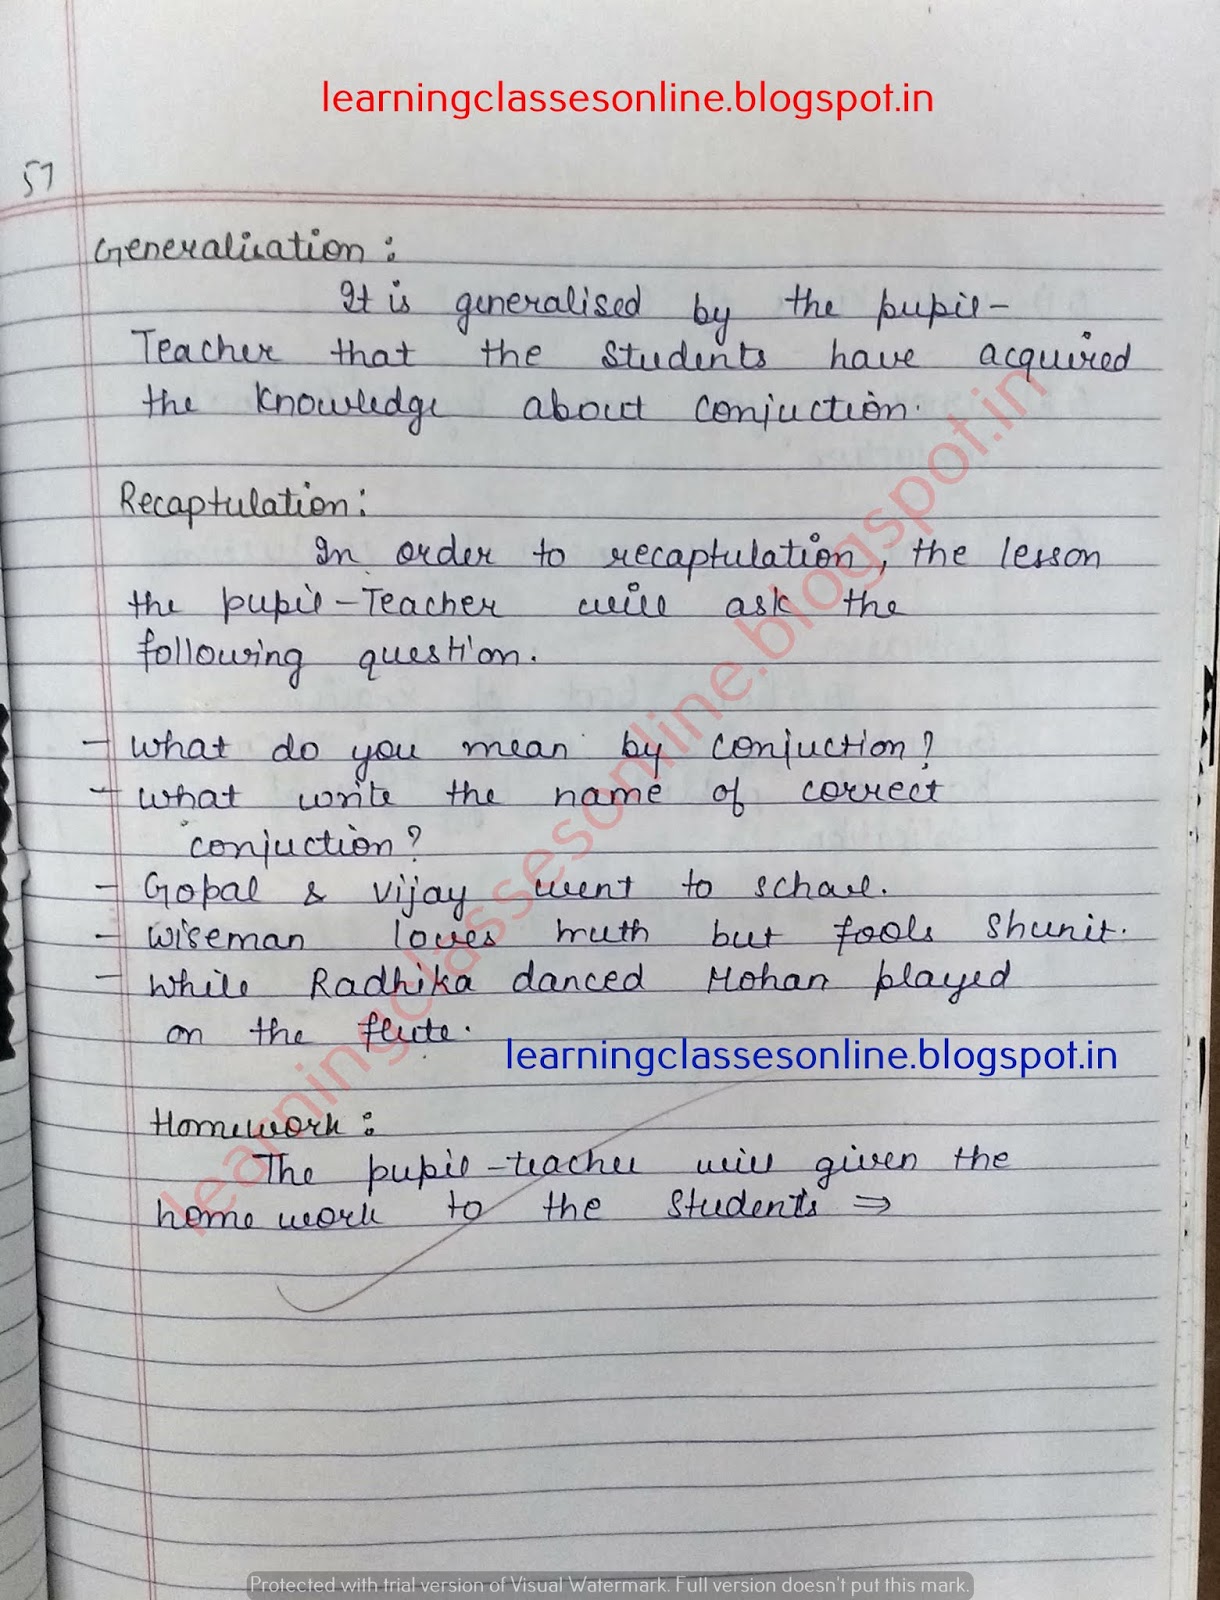 learningclassesonline.blogspot.in
57
Generalisation :
It is generalised by the pupil-
Teacher that the students have acquired
the knowledge about conjuction.
Recaptulation :
In order to recaptulation, the lesson
the pupil-Teacher will ask the
following question.
- What do you mean by conjuction?
- What write the name of correct
conjuction?
- Gopal & Vijay went to school.
- Wiseman loves truth but fools shunit.
- While Radhika danced Mohan played
on the flute.
learningclassesonline.blogspot.in
Homework :
The pupil-teacher will given the
home work to the students ⇒
learningclassesonline.blogspot.in
Protected with trial version of Visual Watermark. Full version doesn't put this mark.